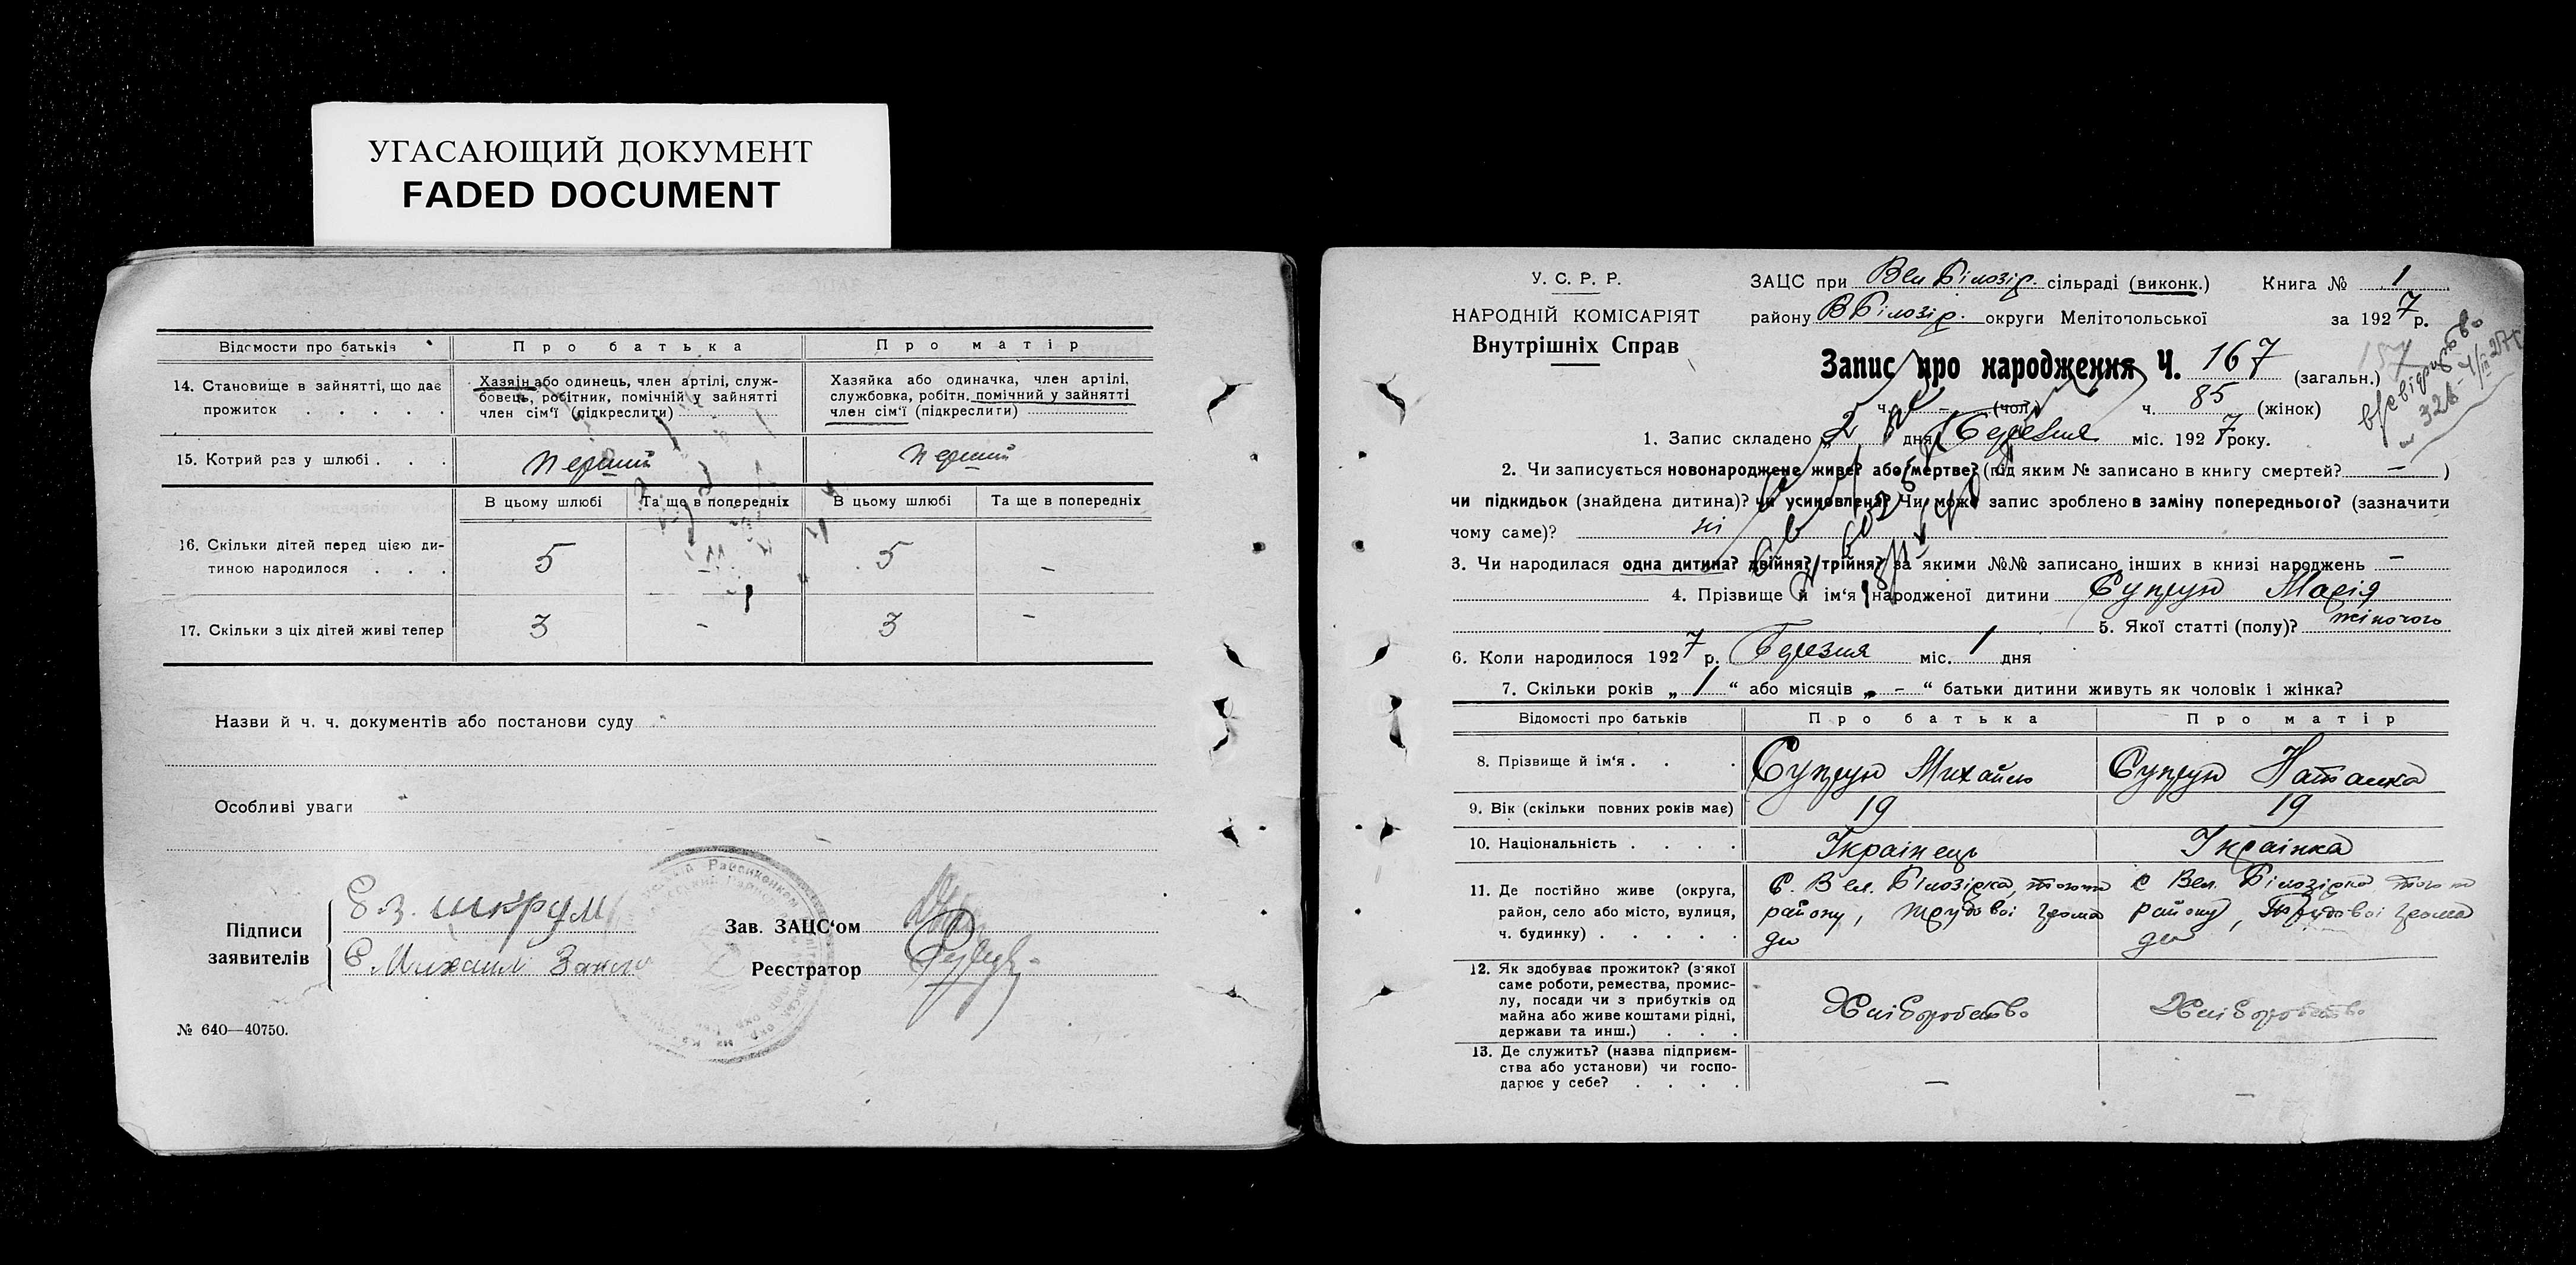 УГАСАЮЩИЙ ДОКУМЕНТ
FADED DOCUMENT
Відомости про батьків
Про батька
Про матір
14. Становище в зайнятті, що дає
прожиток . . . . .
Хазяін або одинець, член артілі, служ-
бовець, робітник, помічній у зайнятті
член сім'ї (підкреслити)
Хазяйка або одиначка, член артілі,
службовка, робітн. помічний у зайнятті
член сім'ї (підкреслити)
15. Котрий раз у шлюбі . . .
перший
перший
В цьому шлюбі
Та ще в попередніх
В цьому шлюбі
Та ще в попередніх
16. Скільки дітей перед цією ди-
тиною народилося . . .
5
-
5
-
17. Скільки з ціх дітей живі тепер
3
-
3
-
Назви й ч. ч. документів або постанови суду
Особливі уваги
Підписи
заявителів
Є.З. шкрум
С. Михаил
Зав. ЗАЦС'ом
Реєстратор
№ 640—40750.
У. С. Р. Р.
НАРОДНІЙ КОМІСАРІЯТ
Внутрішніх Справ
ЗАЦС при Вел Білозір. сільраді (виконк.) Книга № 1
району ВБілозір. округи Мелітопольської за 1927 р.
Запис про народження Ч. 167 (загальн.)
ч. - (чол.) ч. 85 (жінок)
1. Запис складено „2 дня Березня міс. 1927 року.
2. Чи записується новонароджене живе? або мертве? (під яким № записано в книгу смертей? — )
чи підкидьок (знайдена дитина)? чи усиновлена? Чи може запис зроблено в заміну попереднього? (зазначити
чому саме)? ні
3. Чи народилася одна дитина? двійня? трійня? за якими №№ записано інших в книзі народжень —
4. Прізвище й ім'я народженої дитини Супрун Марія
5. Якої статті (полу)? жіночого
6. Коли народилося 1927 р. Березня міс. 1 дня
7. Скільки років „ 1 “ або місяців „ - “ батьки дитини живуть як чоловік і жінка?
Відомості про батьків
Про батька
Про матір
8. Прізвище й ім'я . . .
Супрун Михайло
Супрун Наталка
9. Вік (скільки повних років має)
19
19
10. Національність . . . .
Українець
Українка
11. Де постійно живе (округа,
район, село або місто, вулиця,
ч. будинку) . . . . .
С. Вел. Білозірка, того ж
району, трудової грома
ди
С Вел. Білозірка того ж
району, Трудової грома
ди
12. Як здобуває прожиток? (з'якої
саме роботи, ремества, промис-
лу, посади чи з прибутків од
майна або живе коштами рідні,
держави та инш.) . . .
Хліборобство
Хліборобство
13. Де служить? (назва підприєм-
ства або установи) чи госпо-
дарює у себе? . . . .
—
—